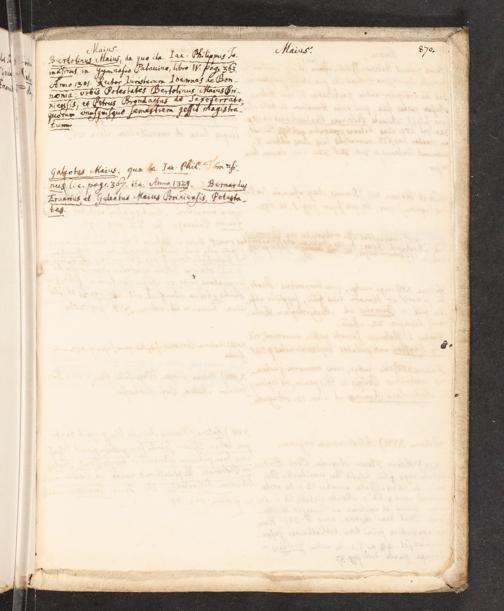 Maius.
Maius.
870.
Bertolinus Maius, de quo ita Iac. Philippus To-
masinus in Gymnasio Patavino, libro IV. pag. 363
Anno 1301. Rector Iuristarum Ioannes de Bon-
nonia: urbis Potestates Bertolinus Maius Bri-
xiensis, et Petrus Brondactus de Saxoferrato,
quorum unusquisque semestrem gessit Magistra-
tum.
Galeotus Maius. quo Ia Iac. Phil. Tomasi-
nus l. c. pag. 367. ita: Anno 1329. Bernardus
et Galeatus Maius Brixiensis, Potesta-
tes.